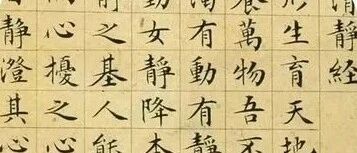 清靜經
形生育天地
養萬物吾不
濁有動有靜
動女靜降本
之基人能
而心擾之心
靜澄其心